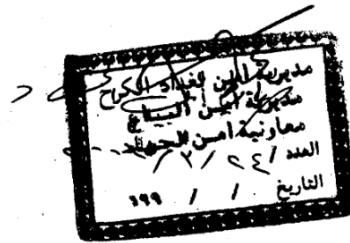 مديرية امن بغداد الكرخ
مديرية امن البياع
معاونية امن الجهاد
العدد / ٢٤ / ٢ /
التاريخ / / ١٩٩